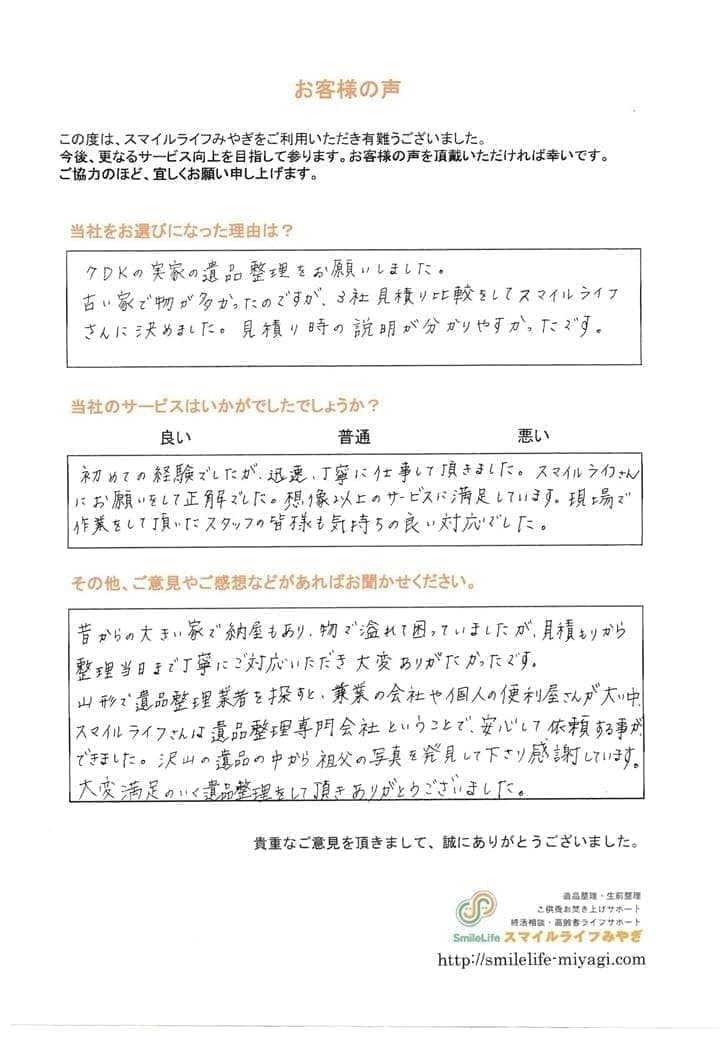 お客様の声
この度は、スマイルライフみやぎをご利用いただき有難うございました。
今後、更なるサービス向上を目指して参ります。お客様の声を頂戴いただければ幸いです。
ご協力のほど、宜しくお願い申し上げます。
当社をお選びになった理由は？
7DKの実家の遺品整理をお願いしました。
古い家で物が多かったのですが、3社見積り比較をしてスマイルライフ
さんに決めました。見積り時の説明が分かりやすかったです。
当社のサービスはいかがでしたでしょうか？
良い 普通 悪い
初めての経験でしたが、迅速、丁寧に仕事して頂きました。スマイルライフさん
にお願いをして正解でした。想像以上のサービスに満足しています。現場で
作業をして頂いたスタッフの皆様も気持ちの良い対応でした。
その他、ご意見やご感想などがあればお聞かせください。
昔からの大きい家で納屋もあり、物で溢れて困っていましたが、見積もりから
整理当日まで丁寧にご対応いただき大変ありがたかったです。
山形で遺品整理業者を探すと、兼業の会社や個人の便利屋さんが大い中、
スマイルライフさんは遺品整理専門会社ということで、安心して依頼する事が
できました。沢山の遺品の中から祖父の写真を発見して下さり感謝しています。
大変満足のいく遺品整理をして頂きありがとうございました。
貴重なご意見を頂きまして、誠にありがとうございました。
遺品整理・生前整理
ご供養お焚き上げサポート
終活相談・高齢者ライフサポート
SmileLife スマイルライフみやぎ
http://smilelife-miyagi.com